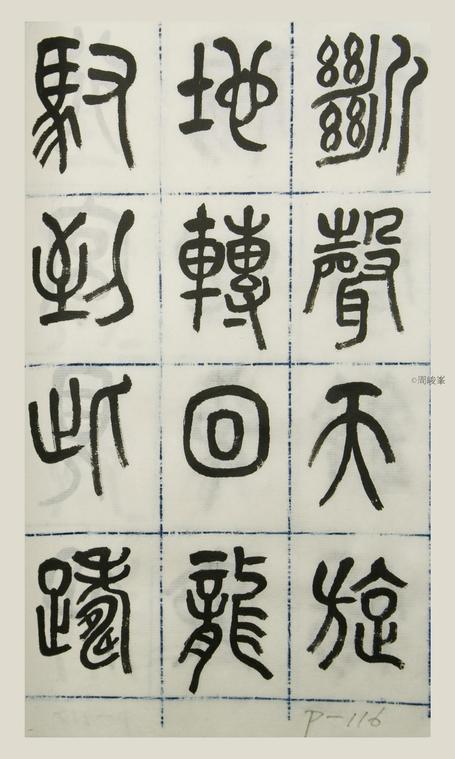 斷聲天旋
地轉回龍
馭到此躊
©周峻峯
P-116